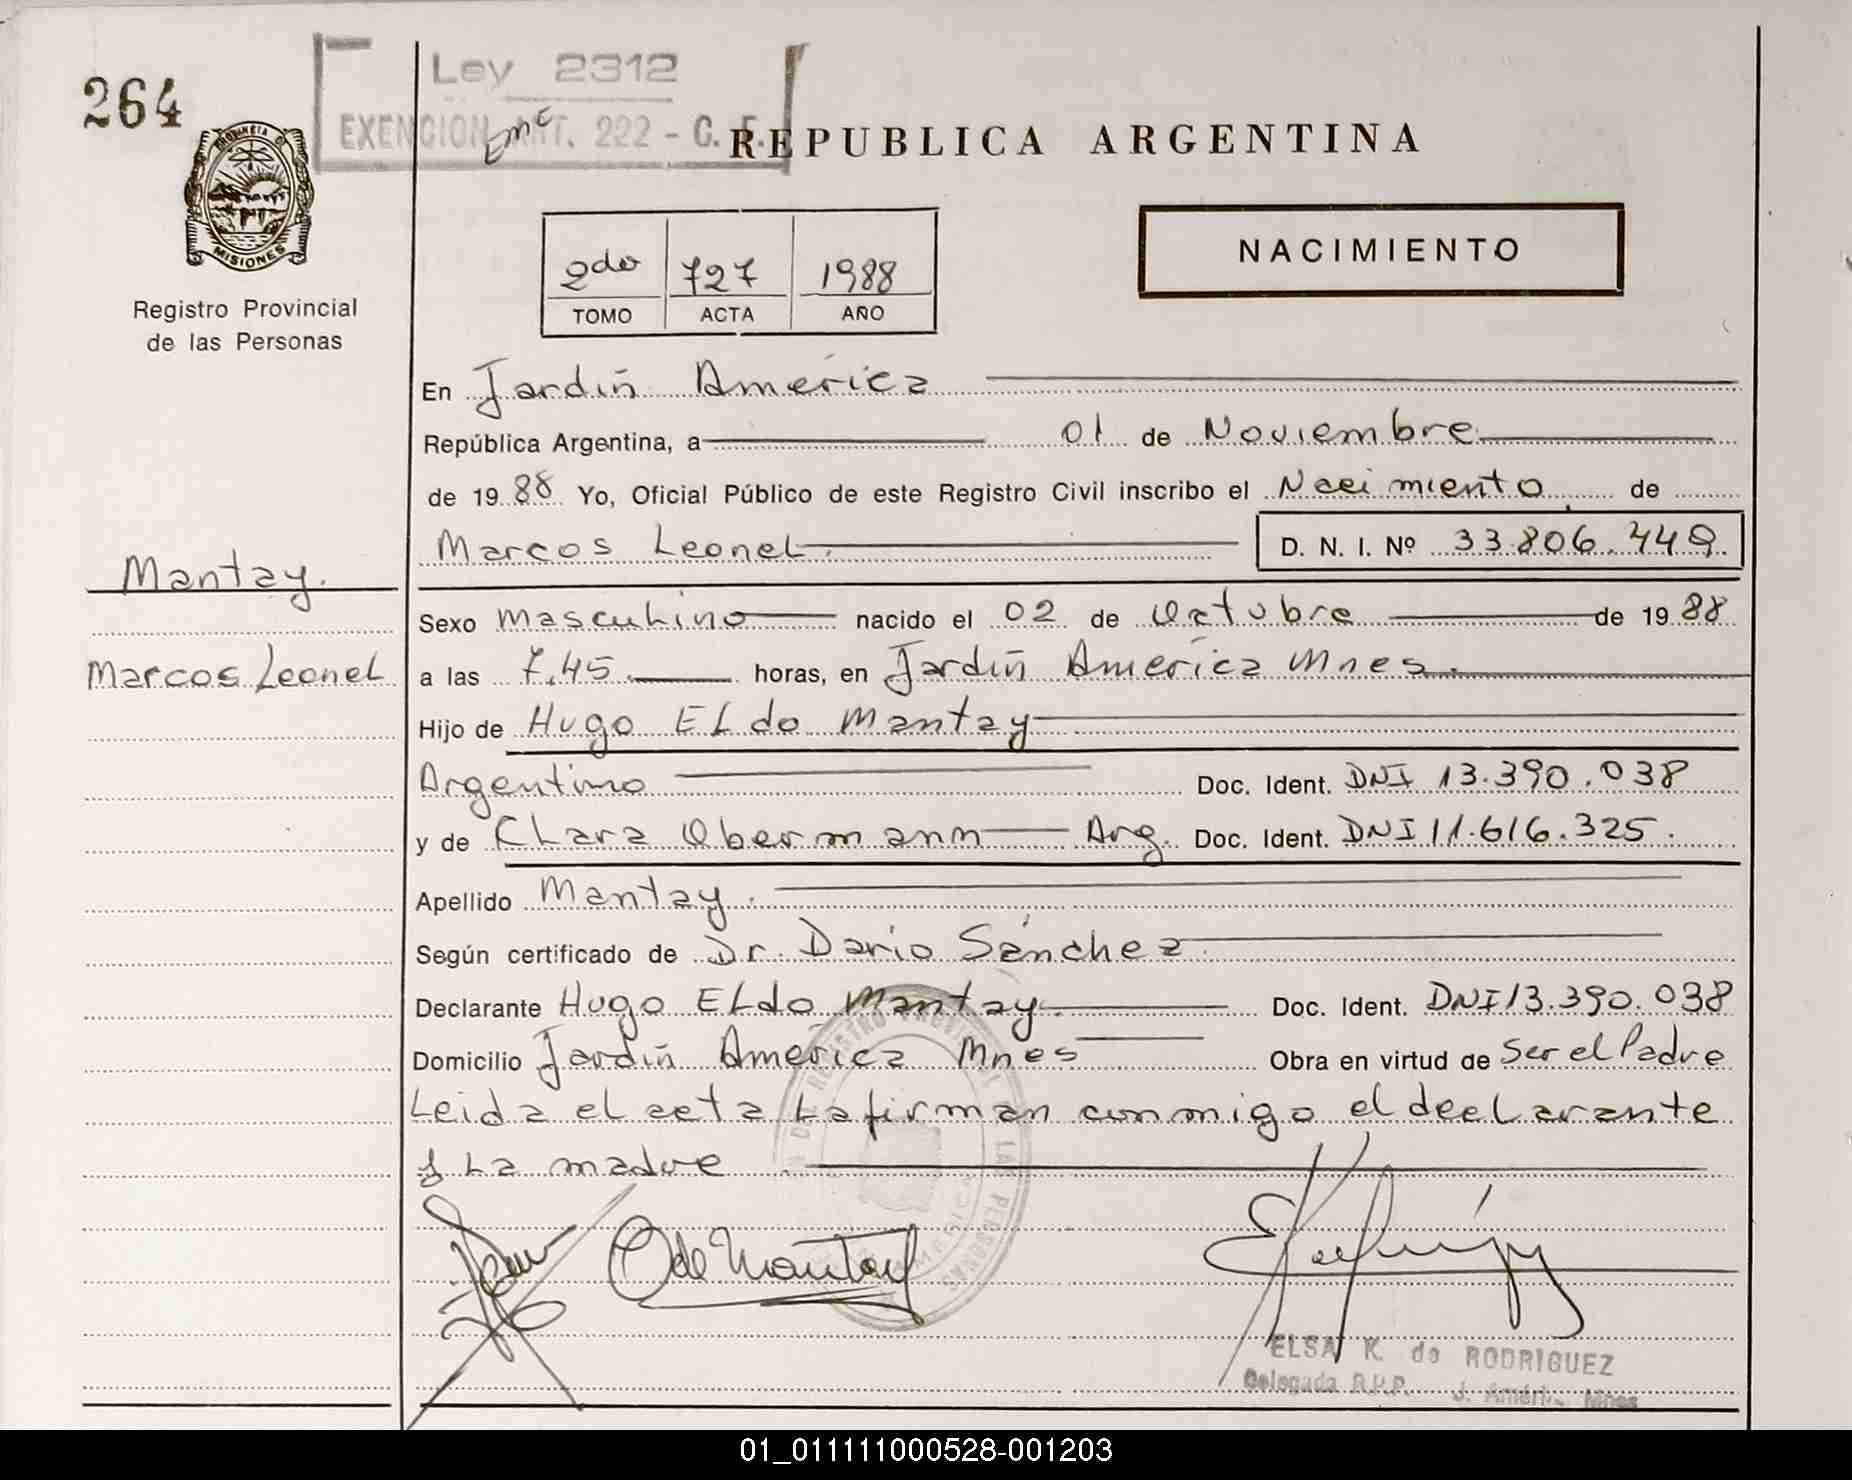 264
Ley 2312
EXENCION ART. 222 - C. F.
REPUBLICA ARGENTINA
PROVINCIA DE
MISIONES
Registro Provincial
de las Personas
2do 727 1988
TOMO ACTA AÑO
NACIMIENTO
En Jardín América
República Argentina, a 01 de Noviembre
de 1988 Yo, Oficial Público de este Registro Civil inscribo el Nacimiento de
Marcos Leonel. D. N. I. Nº 33.806.449
Mantay.
Marcos Leonel
Sexo Masculino nacido el 02 de Octubre de 1988
a las 7.45 horas, en Jardín América Mnes.
Hijo de Hugo Eldo Mantay
Argentino Doc. Ident. DNI 13.390.038
y de Clara Obermann Arg. Doc. Ident. DNI 11.616.325.
Apellido Mantay.
Según certificado de Dr. Dario Sánchez
Declarante Hugo Eldo Mantay Doc. Ident. DNI 13.390.038
Domicilio Jardín América Mnes Obra en virtud de Ser el Padre
Leida el acta la firman conmigo el declarante
y la madre
O de Mantay
ELSA K. de RODRIGUEZ
Delegada R.P.P. J. Améri. Mnes
01_011111000528-001203